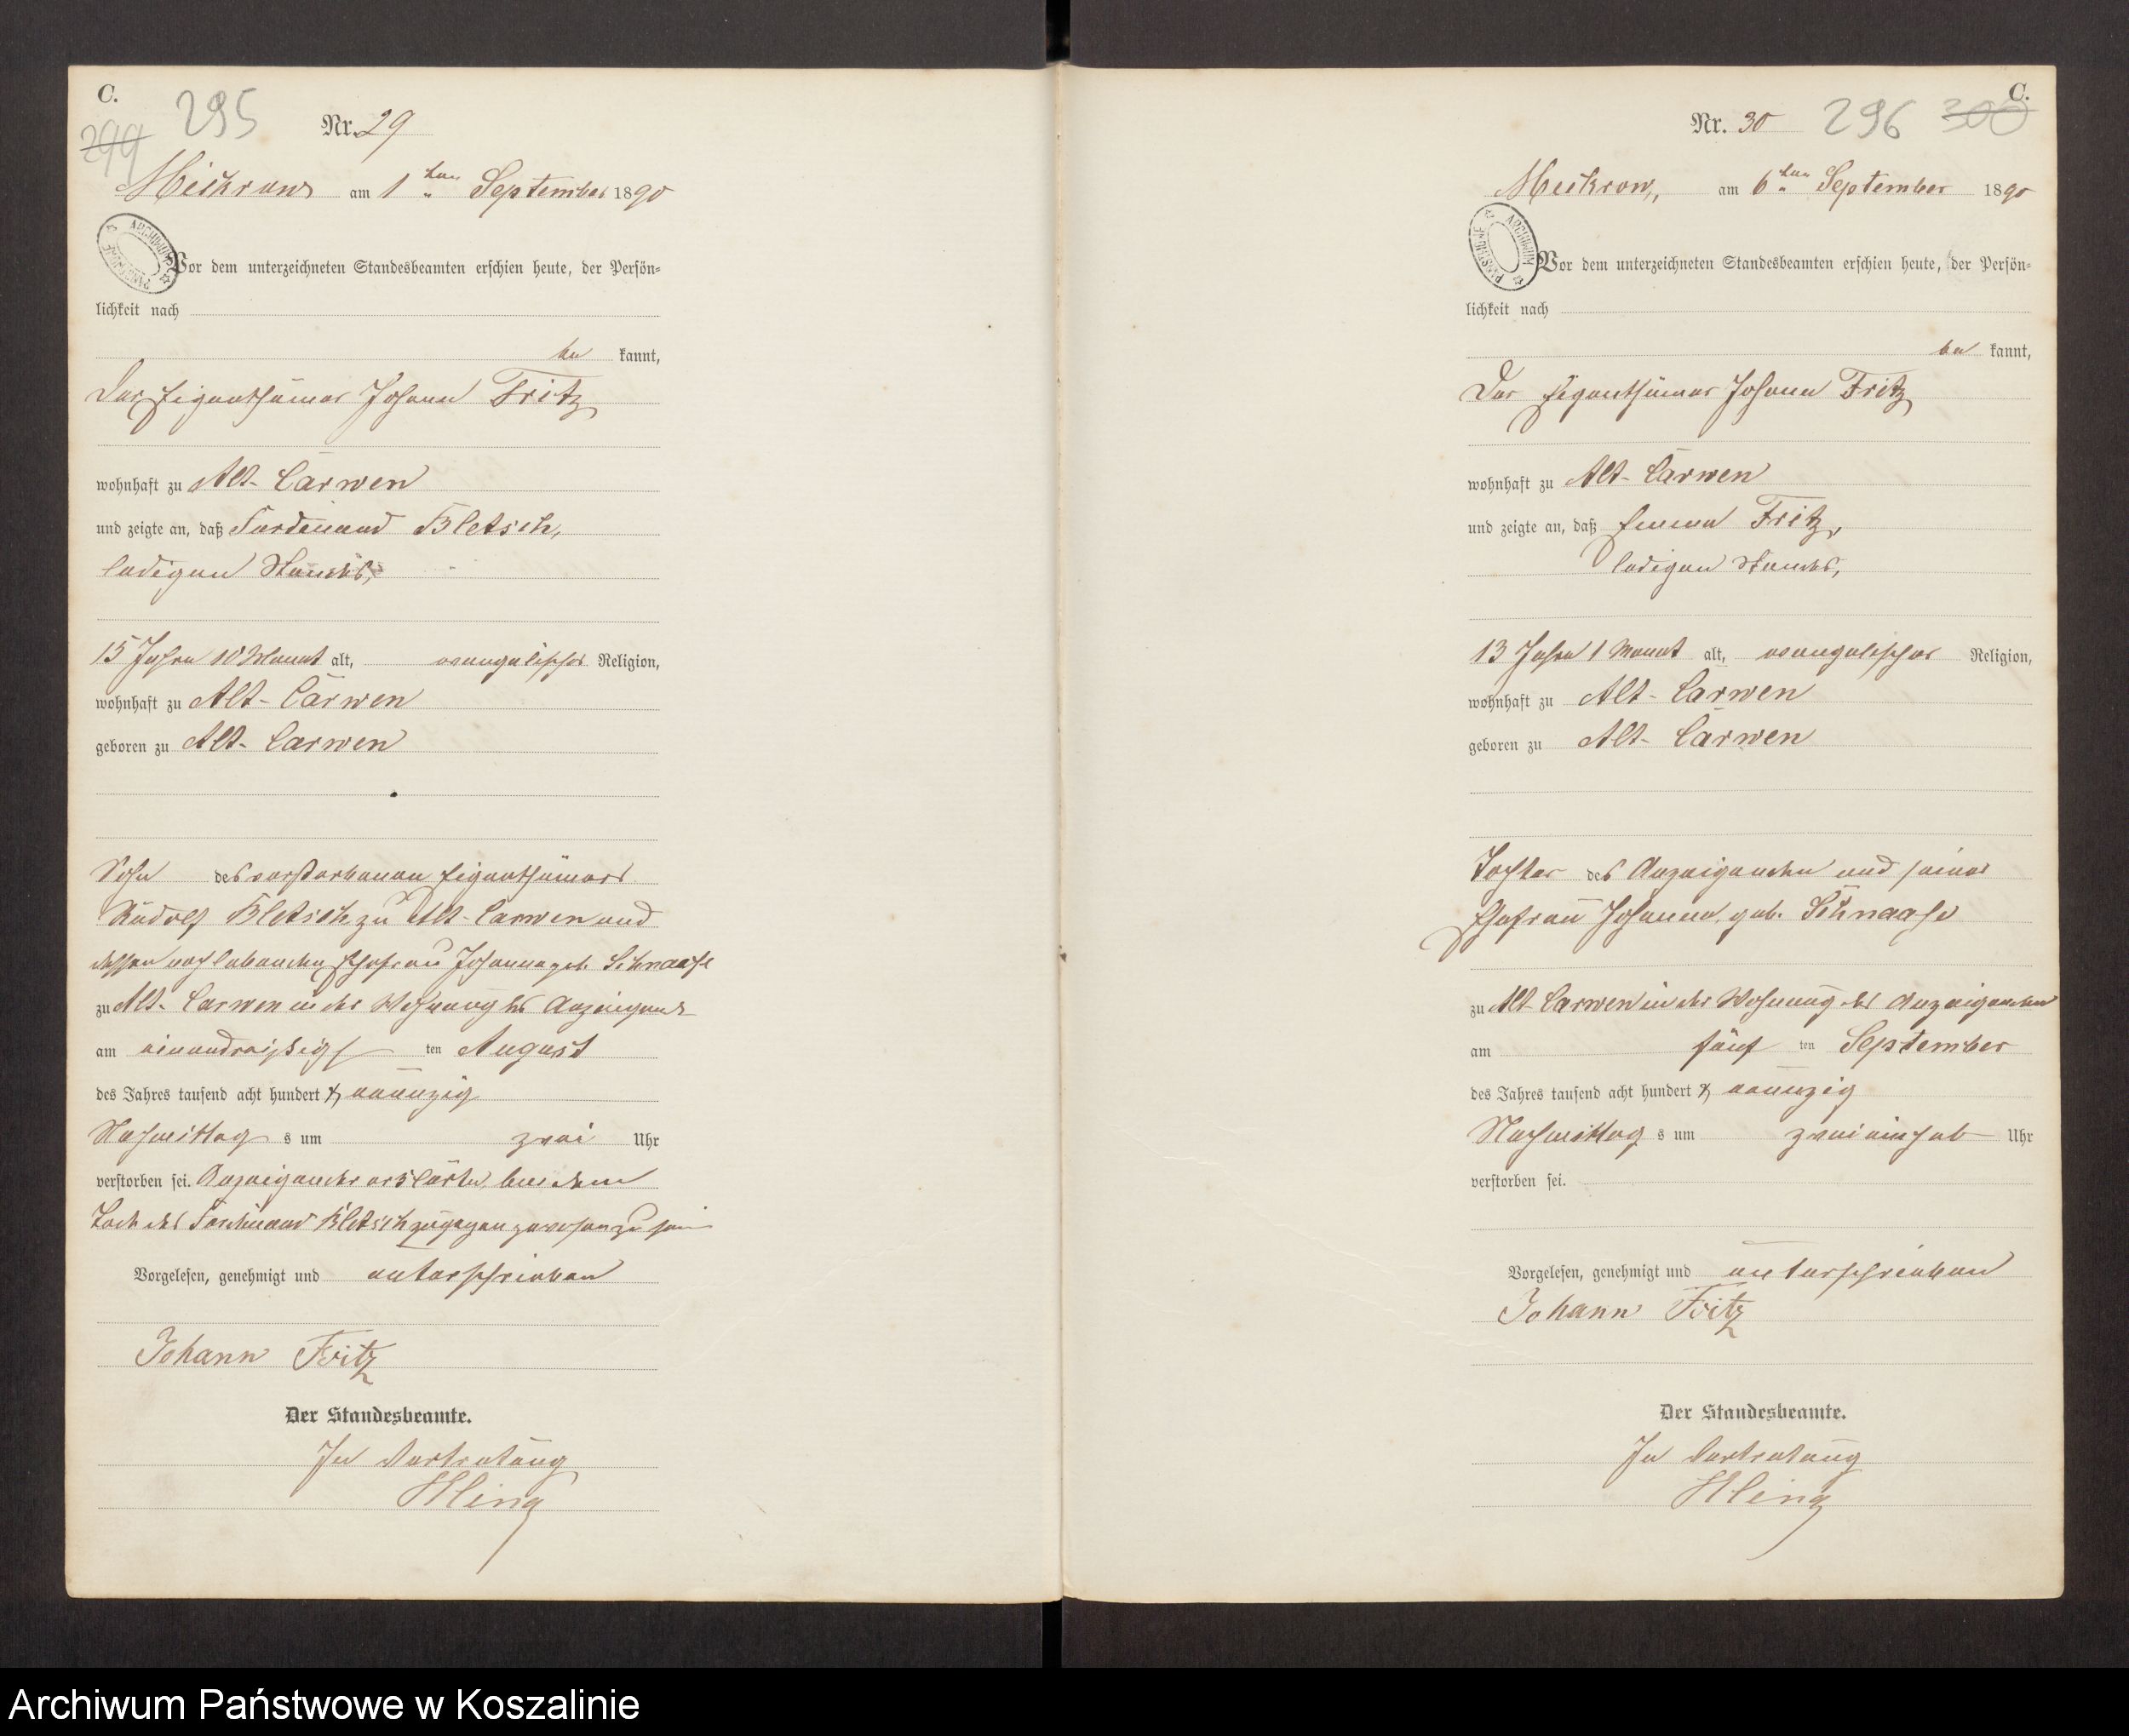 C.
295
299
Nr. 29
Meikrow am 1ten September 1890
ARCHIWUM PAŃSTWOWE
Vor dem unterzeichneten Standesbeamten erschien heute, der Persön=
lichkeit nach
be kannt,
Der Eigenthümer Johann Fritz
wohnhaft zu Alt-Carwen
und zeigte an, daß Ferdinand Bletsch,
ledigen Standes,
15 Jahre 10 Monat alt, evangelischer Religion,
wohnhaft zu Alt-Carwen
geboren zu Alt-Carwen
Sohn des verstorbenen Eigenthümers
Rudolf Bletsch zu Alt-Carwen und
dessen noch lebenden Ehefrau Johanna geb. Schnaase
zu Alt-Carwen in der Wohnung des Anzeigende
am einunddreißigs ten August
des Jahres tausend acht hundert neunzig
Nachmittag s um zwei Uhr
verstorben sei. Anzeigender erklärte, bei dem
Tode des Ferdinand Bletsch zugegen gewesen zu sein
Vorgelesen, genehmigt und unterschrieben
Johann Fritz
Der Standesbeamte.
In Vertretung
Kling
C.
Nr. 30
296
300
Meikrow, am 6ten September 1890
ARCHIWUM PAŃSTWOWE
Vor dem unterzeichneten Standesbeamten erschien heute, der Persön=
lichkeit nach
be kannt,
Der Eigenthümer Johann Fritz
wohnhaft zu Alt-Carwen
und zeigte an, daß Emma Fritz,
ledigen Standes,
13 Jahre 1 Monat alt, evangelischer Religion,
wohnhaft zu Alt-Carwen
geboren zu Alt-Carwen
Tochter des Anzeigenden und seiner
Ehefrau Johanna geb. Schnaase
zu Alt-Carwen in der Wohnung des Anzeigenden
am fünf ten September
des Jahres tausend acht hundert neunzig
Nachmittag s um zwei einhalb Uhr
verstorben sei.
Vorgelesen, genehmigt und unterschrieben
Johann Fritz
Der Standesbeamte.
In Vertretung
Kling
Archiwum Państwowe w Koszalinie